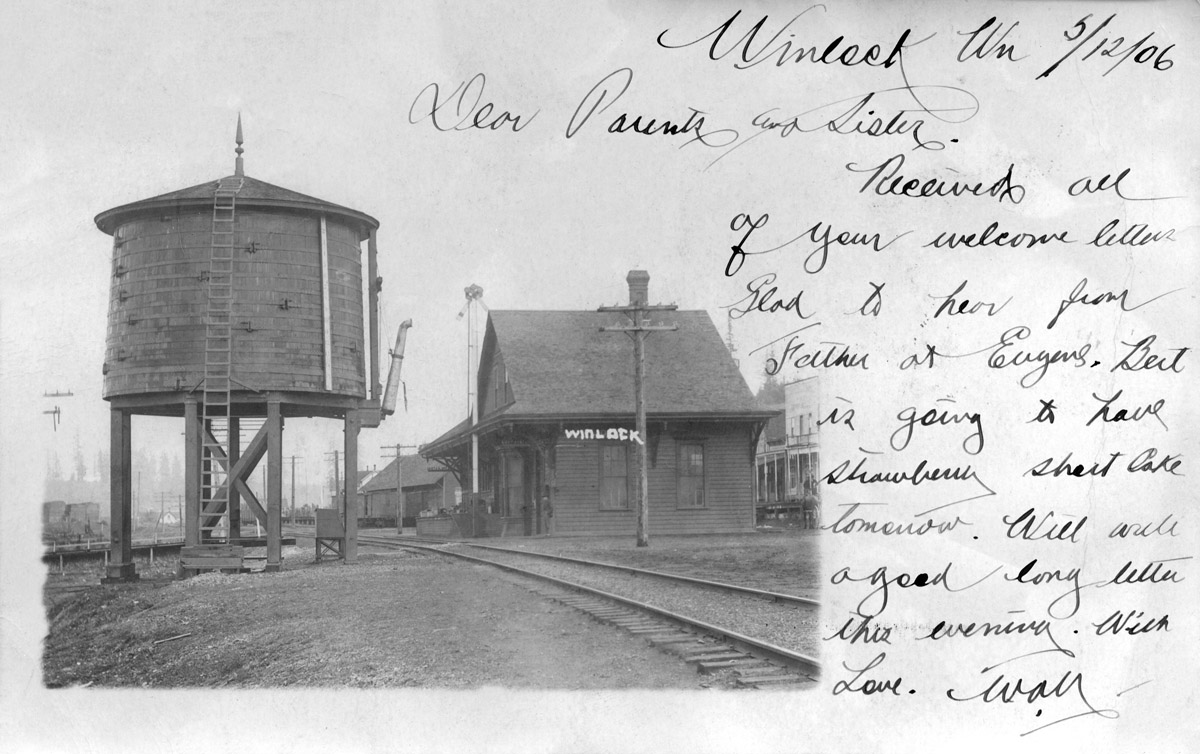 Winlock Wn 5/12/06
Dear Parents and Sister.
Received all
of your welcome letters
Glad to hear from
Father at Eugene. Bert
is going to have
strawberry short cake
tomorrow. Will write
a good long letter
this evening. With
Love. Walt
WINLOCK